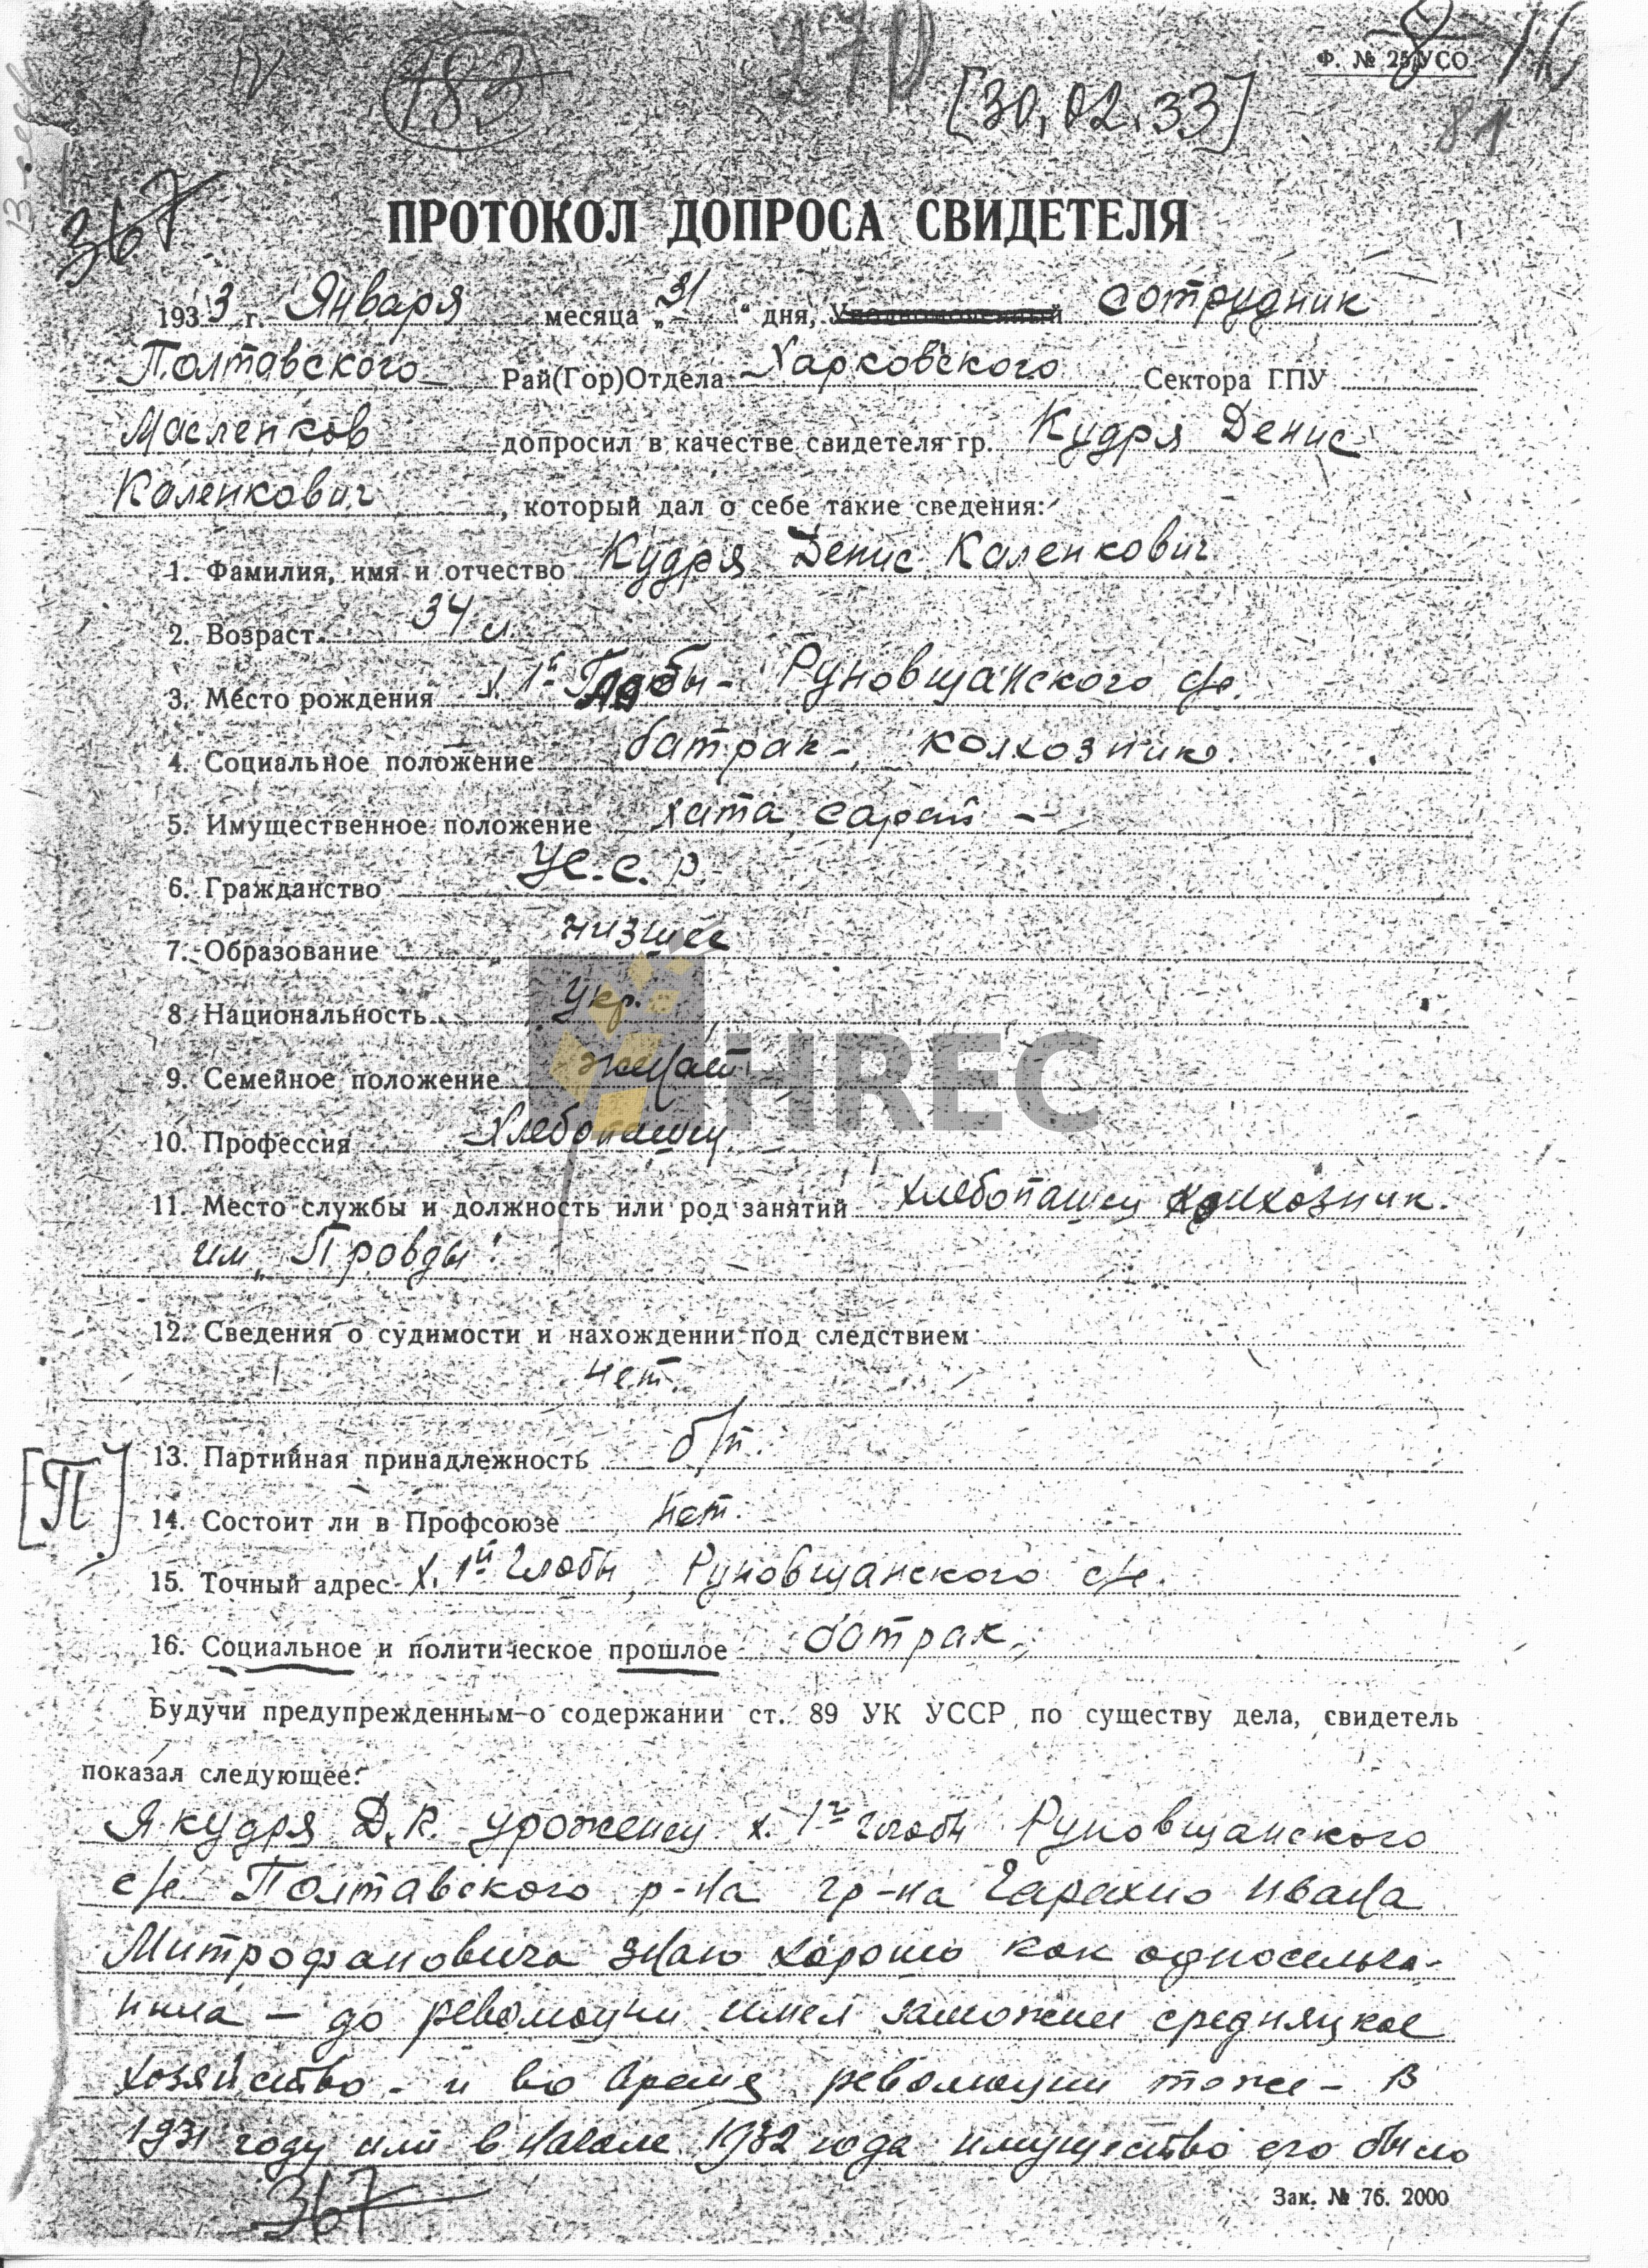 Ф. № 25 УСО
183
[30.02.33]
81
367
ПРОТОКОЛ ДОПРОСА СВИДЕТЕЛЯ
1933 г. Января месяца „31“ дня, Уполномоченный сотрудник
Полтавского Рай(Гор)Отдела Харковского Сектора ГПУ
Масленков допросил в качестве свидетеля гр. Кудря Денис
Каленкович, который дал о себе такие сведения:
1. Фамилия, имя и отчество Кудря Денис Каленкович
2. Возраст 34 л
3. Место рождения х. 1й Глобы - Руновщанского с/с.
4. Социальное положение батрак - колхозник.
5. Имущественное положение хата, сарай -
6. Гражданство У.С.С.Р
7. Образование низшее
8. Национальность укр.
9. Семейное положение женат
10. Профессия Хлебопашец
11. Место службы и должность или род занятий хлебопашец колхозник.
им „Правды“.
12. Сведения о судимости и нахождении под следствием
нет.
13. Партийная принадлежность б/п.
[П]
14. Состоит ли в Профсоюзе нет.
15. Точный адрес х. 1й Глобы, Руновщанского с/с.
16. Социальное и политическое прошлое батрак,
Будучи предупрежденным о содержании ст. 89 УК УССР по существу дела, свидетель
показал следующее:
Я Кудря Д.К. уроженец х. 1й Глобы Руновщанского
с/с Полтавского р-на гр-на Ивана
Митрофановича знаю хорошо как односельча-
нина - до революции имел заможне средняцкое
хозяйство - и во время революции тоже - В
1931 году или в начале 1932 года имущество его было
367
Зак. № 76. 2000
HREC